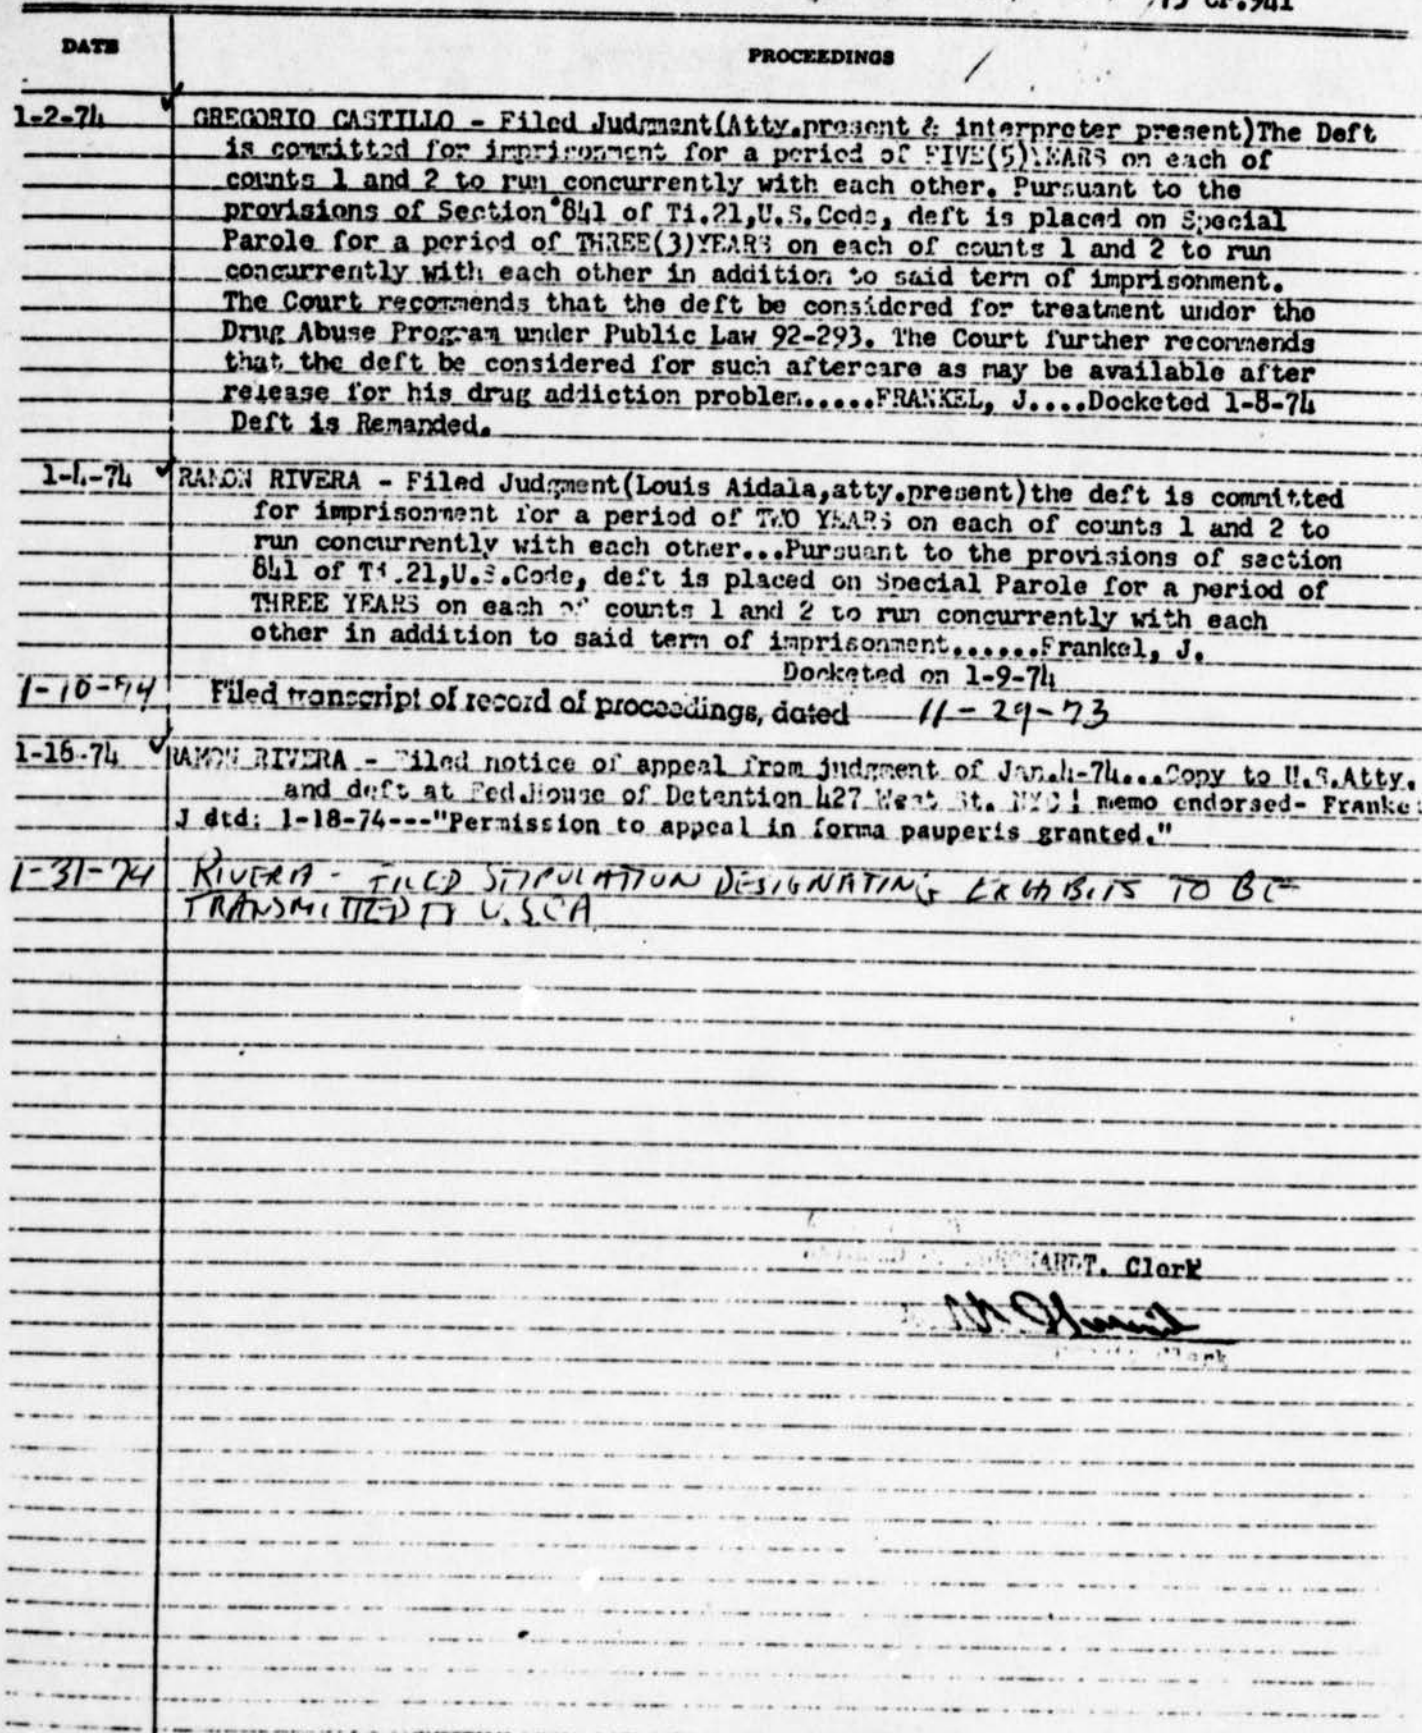 DATE
PROCEEDINGS
1-2-74 GREGORIO CASTILLO - Filed Judgment(Atty.present & interpreter present)The Deft
is committed for imprisonment for a period of FIVE(5)YEARS on each of
counts 1 and 2 to run concurrently with each other. Pursuant to the
provisions of Section 841 of Ti.21,U.S.Code, deft is placed on Special
Parole for a period of THREE(3)YEARS on each of counts 1 and 2 to run
concurrently with each other in addition to said term of imprisonment.
The Court recommends that the deft be considered for treatment under the
Drug Abuse Program under Public Law 92-293. The Court further recommends
that the deft be considered for such aftercare as may be available after
release for his drug addiction problem.....FRANKEL, J....Docketed 1-8-74
Deft is Remanded.
1-4-74 RAMON RIVERA - Filed Judgment(Louis Aidala,atty.present)the deft is committed
for imprisonment for a period of TWO YEARS on each of counts 1 and 2 to
run concurrently with each other...Pursuant to the provisions of section
841 of Ti.21,U.S.Code, deft is placed on Special Parole for a period of
THREE YEARS on each of counts 1 and 2 to run concurrently with each
other in addition to said term of imprisonment......Frankel, J.
Docketed on 1-9-74
1-10-74 Filed transcript of record of proceedings, dated 11-29-73
1-16-74 RAMON RIVERA - Filed notice of appeal from judgment of Jan.4-74...Copy to U.S.Atty.
and deft at Fed.House of Detention 427 West St. NYC! memo endorsed- Franke
J dtd: 1-18-74---"Permission to appeal in forma pauperis granted."
1-31-74 RIVERA - FILED STIPULATION DESIGNATING EXHIBITS TO BE
TRANSMITTED TO U.S.C.A
Clerk
Clerk